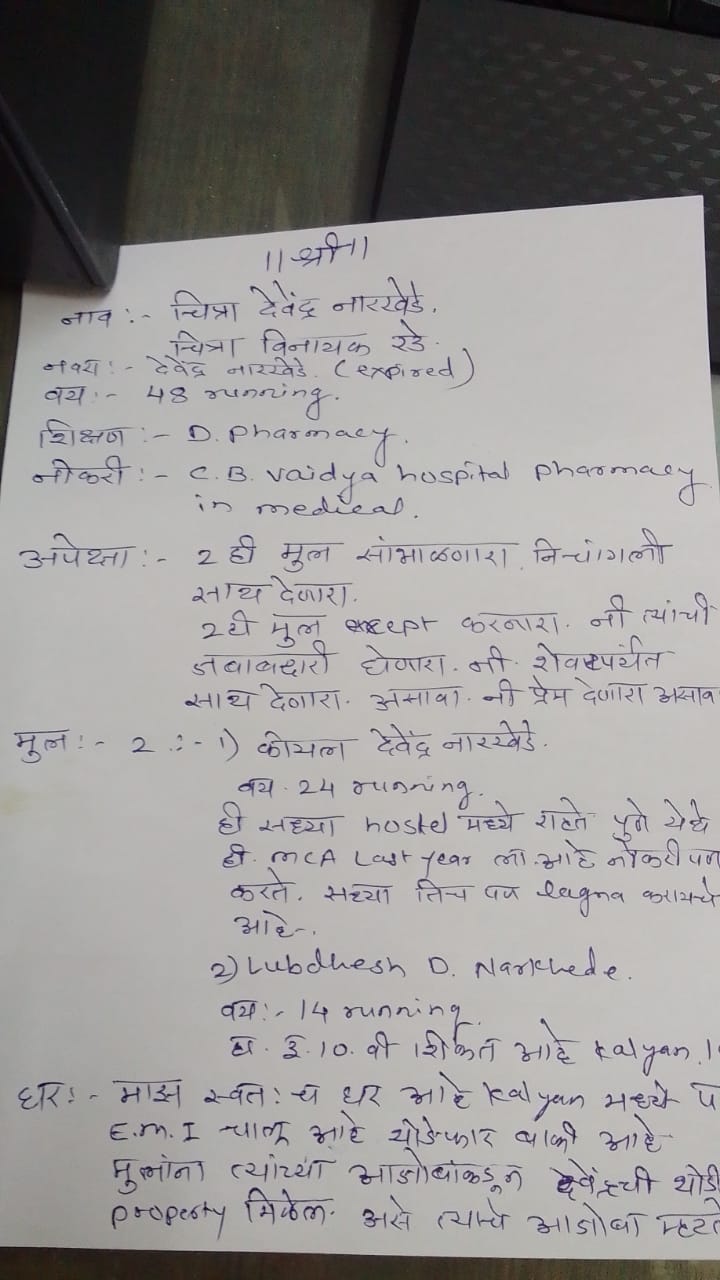 ॥श्री॥
नाव :- चित्रा देवेंद्र नारखेडे.
चित्रा विनायक रडे.
नवरा :- देवेंद्र नारखेडे. (expired)
वय :- 48 running.
शिक्षण :- D. pharmacy.
नोकरी :- C.B. Vaidya hospital pharmacy
in medical.
अपेक्षा :- 2 ही मुल सांभाळणारा. नि चांगली
साथ देणारा.
2ही मुल except करनारा. नी त्यांची
जबाबदारी घेणारा. नी शेवटपर्यंत
साथ देणारा. असावा. नी प्रेम देणारा असाव
मुल :- 2 :- 1) कोयल देवेंद्र नारखेडे.
वय. 24 running.
ही सध्या hostel मध्ये राहते पुणे येथे
ही. MCA Last year ला आहे नोकरी पण
करते. सध्या तिच पण lagna करायचे
आहे.
2) Lubdhesh D. Narkhede.
वय :- 14 running
हा. इ. 10. वी शिकत आहे kalyan.
घर :- माझ स्वतः च घर आहे kalyan मध्ये प
E.M.I चालू आहे थोडेफार बाकी आहे
मुलांना त्यांच्या आजोबांकडून देवेंद्रची थोडी
property मिळेल. असे त्याचे आजोबा म्हटले